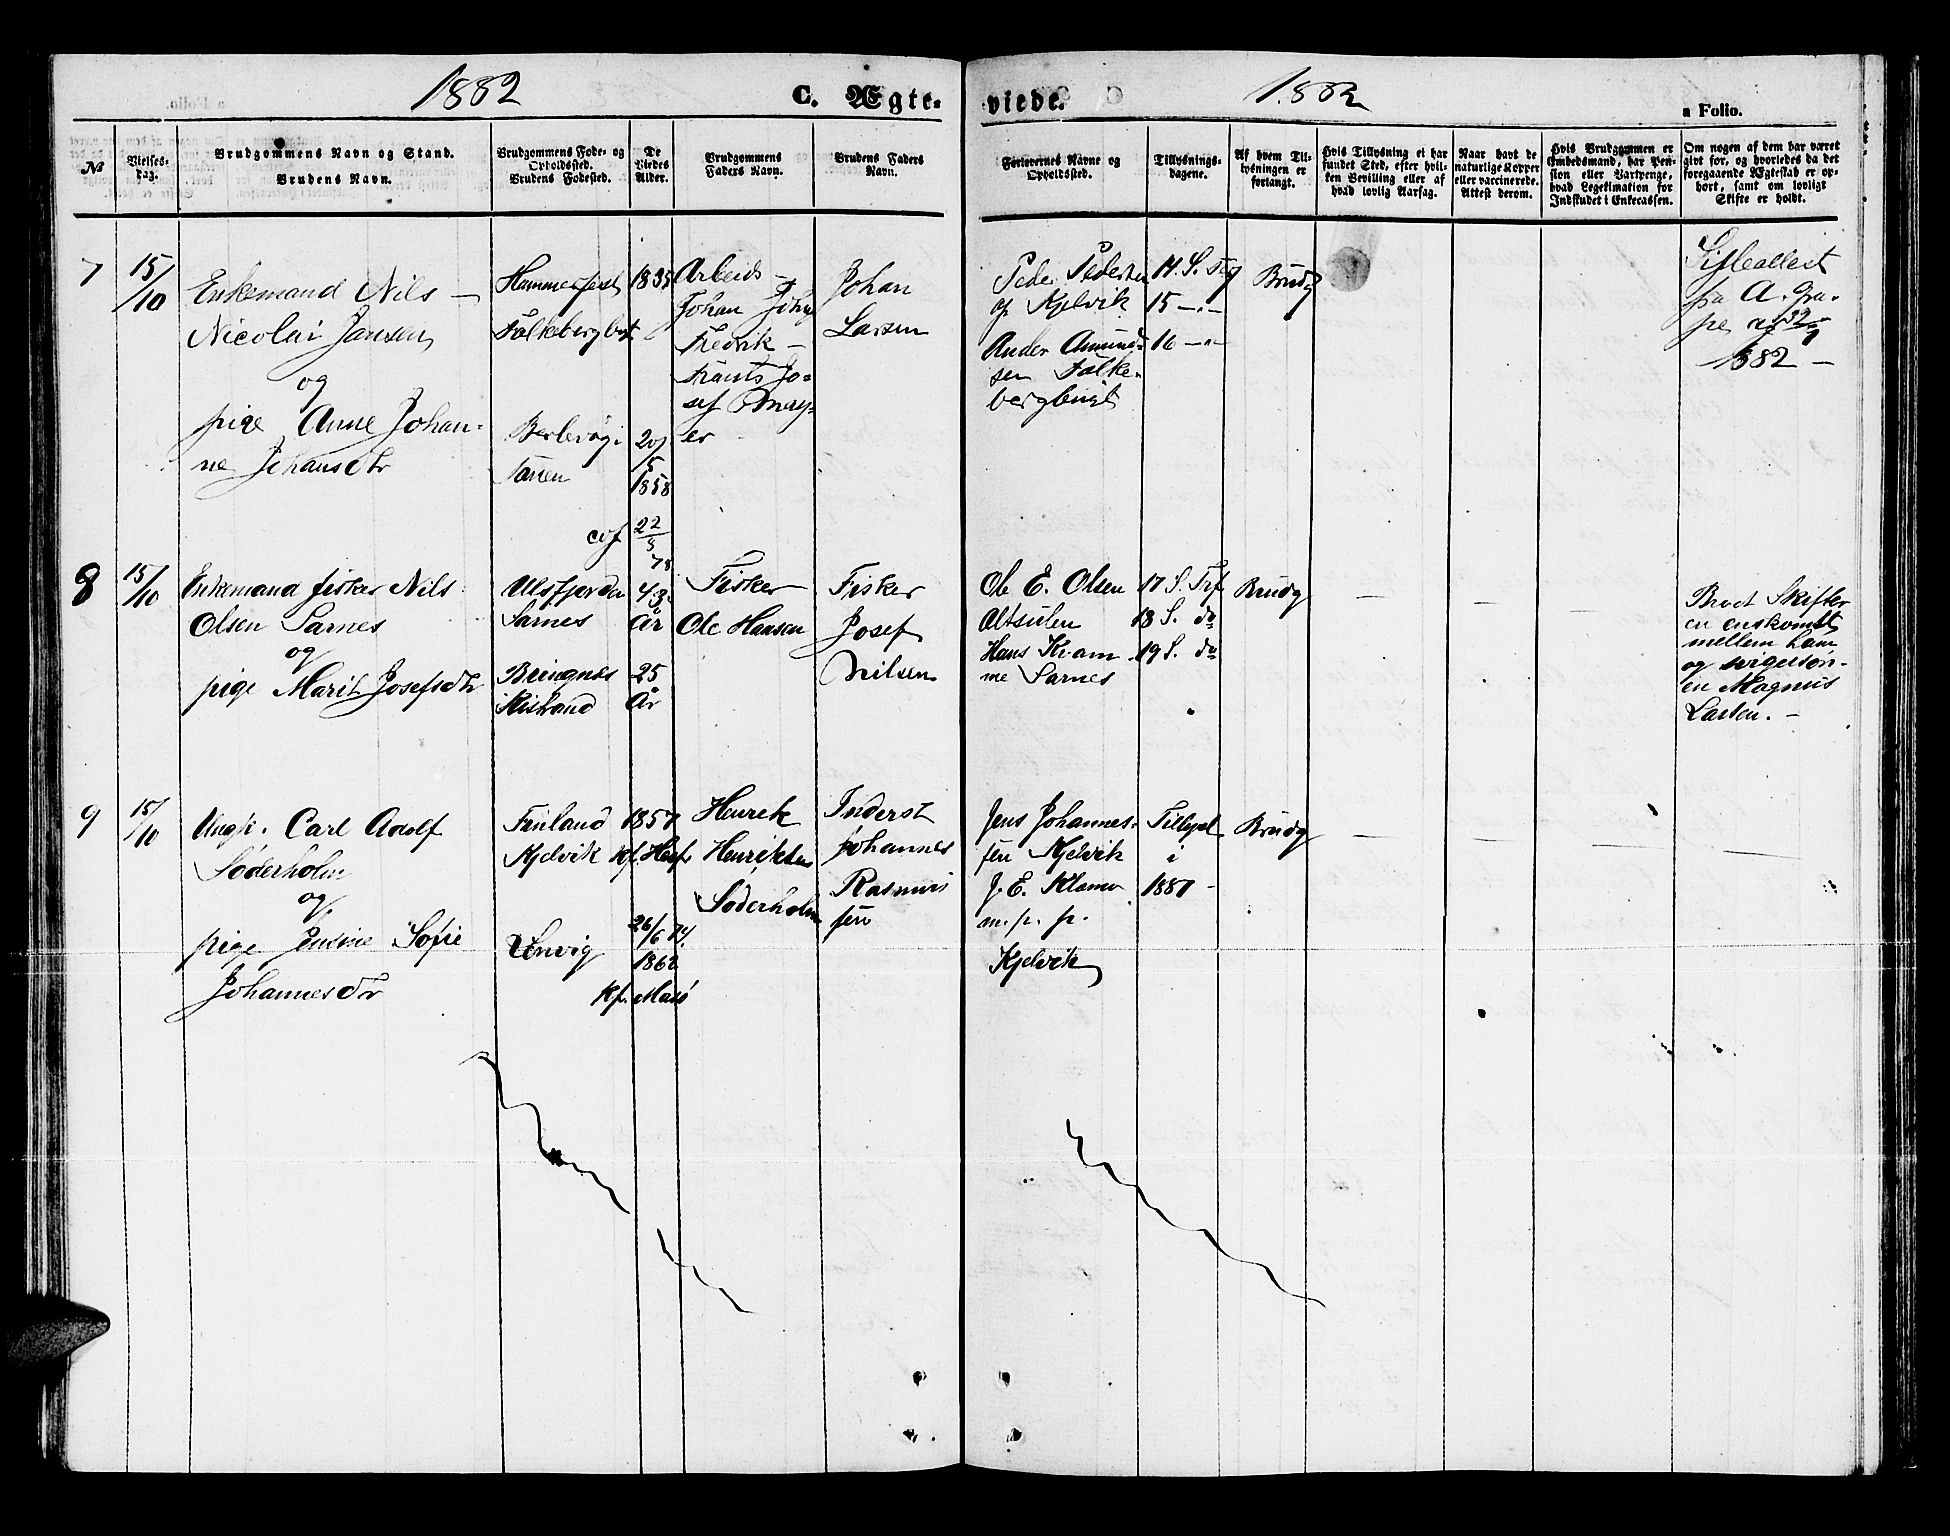 1882
C. Ægte-
viede.
1882
a Folio.
№
Vielses-
dag.
Brudgommens Navn og Stand.
Brudens Navn.
Brudgommens Føde- og
Opholdssted.
Brudens Fødested.
De
Viedes
Alder.
Brudgommens
Faders Navn.
Brudens Faders
Navn.
Forlovernes Navne og
Opholdssted.
Tillysnings-
dagene.
Af hvem Til-
lysningen er
forlangt.
Hvis Tillysning ei har
fundet Sted, efter hvil-
ken Bevilling eller af
hvad lovlig Aarsag.
Naar havt de
naturlige Kopper
eller vaccinerede.
Attest derom.
Hvis Brudgommen er
Embedsmand, har Pen-
sion eller Vartpenge,
hvad Legetimation for
Indskudet i Enkecassen.
Om nogen af dem har været
givt for, og hvorledes da det
foregaaende Ægteskab er op-
hørt, samt om lovligt
Skifte er holdt.
7
15/10
Enkemand Nils
Nicolai Jansen
og
pige Anne Johan-
ne Johansdtr
Hammerfest
Falkebergbugt
Berlevåg i
Tanen
1835
20/5
1858
cof 22/5
78
Arbeids
Johan
Fredrik
Frants Jo-
sef
er
Johan
Larsen
Peder Pedersen
og Kjelvik
Ander Amund-
sen Falke-
bergbugt
14. S. Tef
15 —"—
16 —"—
Brudg
fra A.
1882 —
8
15/10
Enkemand fisker Nils
Olsen Sarnes
og
pige Marit Josefsdtr
Ulsfjorden
Sarnes
Bringnes
Kistrand
43
År
25
År
Fisker
Ole Hansen
Fisker
Josef
Nilsen
Ole E. Olsen
Altsulen
Hans Kram
me Sarnes
17 S. Tref
18 S. do
19 S. do
Brudg
Brevet Skifter
en enskomst
mellem ham
og svigersøn-
en Magnus
Larsen. —
9
15/10
Ungk. Carl Adolf
Søderholm
og
pige Jensine Sofie
Johannesdtr
Finland
Kjelvik
1857
Kf. Hesf
26/6 74.
1862
Kf. Masö
Henrik
Henriksen
Søderholm
Inderst
Johannes
Rasmus
sen
Jens Johannes-
sen Kjelvik
J. E. Klamer
m. p. p.
Kjelvik
Tillyst
i
1881
Brudg